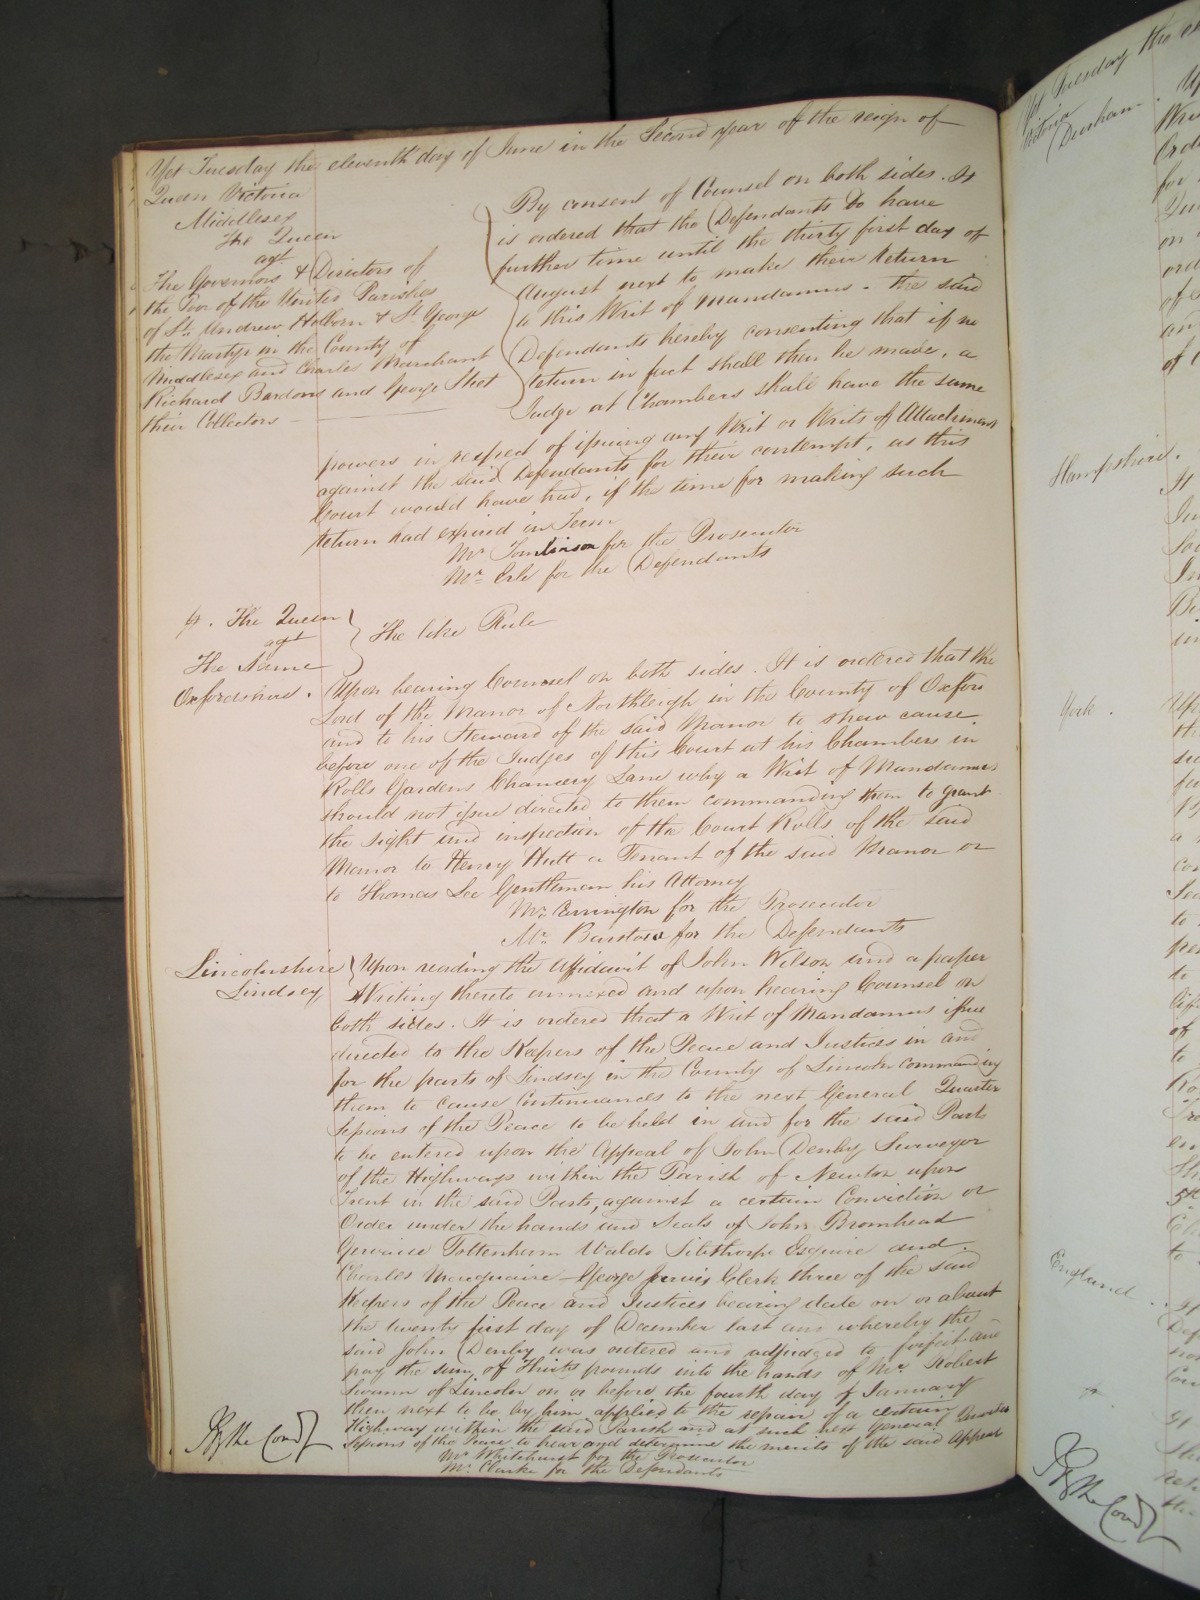 Yet Tuesday the eleventh day of June in the Second year of the reign of
Queen Victoria
Middlesex
The Queen
agt
The Governors & Directors of
the Poor of the United Parishes
of St. Andrew Holborn & St. George
the Martyr in the County of
Middlesex and Charles Marchant
Richard Bardons and George
their Collectors
By consent of Counsel on both sides. It
is ordered that the Defendants do have
further time until the thirty first day of
August next to make their Return
to this Writ of Mandamus. The said
Defendants hereby consenting that if no
return in fact shall then be made, a
Judge at Chambers shall have the same
powers in respect of issuing any Writ or Writs of Attachment
against the said Defendants for their contempt, as this
Court would have had, if the time for making such
return had expired in Term
Mr Tomlinson for the Prosecutor
Mr. Erle for the Defendants
The Queen
agt
The Same
The like Rule
Oxfordshire.
Upon hearing Counsel on both sides. It is ordered that the
Lord of the Manor of Northleigh in the County of Oxford
and to his Steward of the said Manor to shew cause
before one of the Judges of this Court at his Chambers in
Rolls Gardens Chancery Lane why a Writ of Mandamus
should not issue directed to them commanding them to grant
the sight and inspection of the Court Rolls of the said
Manor to Henry Hutt a Tenant of the said Manor or
to Thomas Lee Gentleman his Attorney
Mr. Errington for the Prosecutor
Mr. Barstow for the Defendants
Lincolnshire
Lindsey
Upon reading the Affidavit of John Wilson and a paper
Writing thereto annexed and upon hearing Counsel on
both sides. It is ordered that a Writ of Mandamus issue
directed to the Keepers of the Peace and Justices in and
for the parts of Lindsey in the County of Lincoln commanding
them to cause Continuances to the next General Quarter
Sessions of the Peace to be held in and for the said Parts
to be entered upon the Appeal of John Denby Surveyor
of the Highways within the Parish of Newton upon
Trent in the said Parts, against a certain Conviction or
Order under the hands and Seals of John Bromhead
Gervaise Tottenham Waldo Sibthorpe Esquire and
Charles Macquaire George Jarvis Clerk three of the said
Keepers of the Peace and Justices bearing date on or about
the twenty first day of December last and whereby the
said John Denby was ordered and adjudged to forfeit and
pay the sum of Thirty pounds into the hands of Mr. Robert
Swann of Lincoln on or before the fourth day of January
then next to be by him applied to the repair of a certain
Highway within the said Parish and at such next General Quarter
Sessions of the Peace to hear and determine the merits of the said Appeal
Mr. Whitehurst for the Prosecutor
Mr. Clarke for the Defendants
By the Court
Yet Tuesday the
Victoria
Durham
Hampshire.
York.
England
By the Court